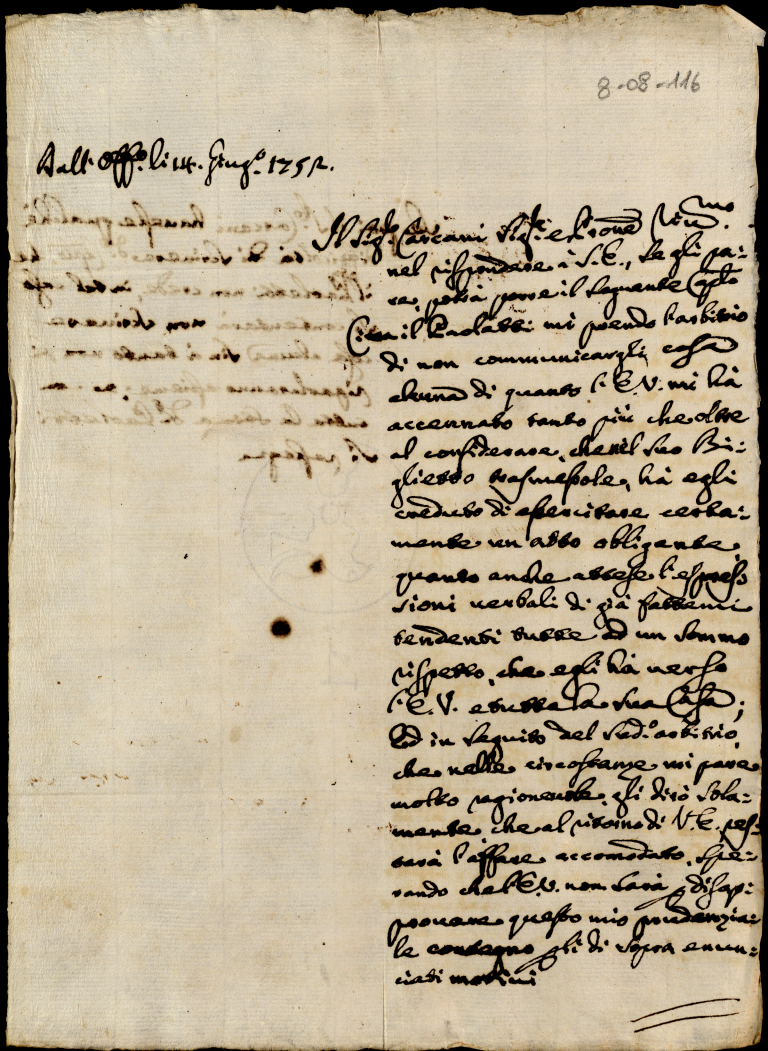 8-08-116
Dall' Offo. li 14. Giugo. 1752.
Il Sigr. Carcani Sigr. e Prone
nel rispondere à S.E., se gli pa=
re, potrà porre il seguente Caplo
Con il Paolatti mi prendo l'arbitrio
di non communicargli cosa
alcuna di quanto l'E.V. mi hà
accennato tanto più che oltre
al considerare, che nel suo Bi=
glietto trasmessole, hà egli
creduto di esercitare certa=
mente un atto obligante,
quanto anche attese l'espres=
sioni verbali di già fattemi
tendenti tutte ad un sommo
rispetto, che egli hà verso
l'E.V. e tutta la sua Casa;
Ed in seguito del sudo. arbitrio,
che nelle circostanze mi pare
molto ragionevole, gli dirò sola=
mente, che al ritorno di V.E. res=
terà l'affare accomodato, spe=
rando che l'E.V. non sarà p disap=
provare questo mio prudenzia=
le contegno p li di sopra enun=
ciati motivi